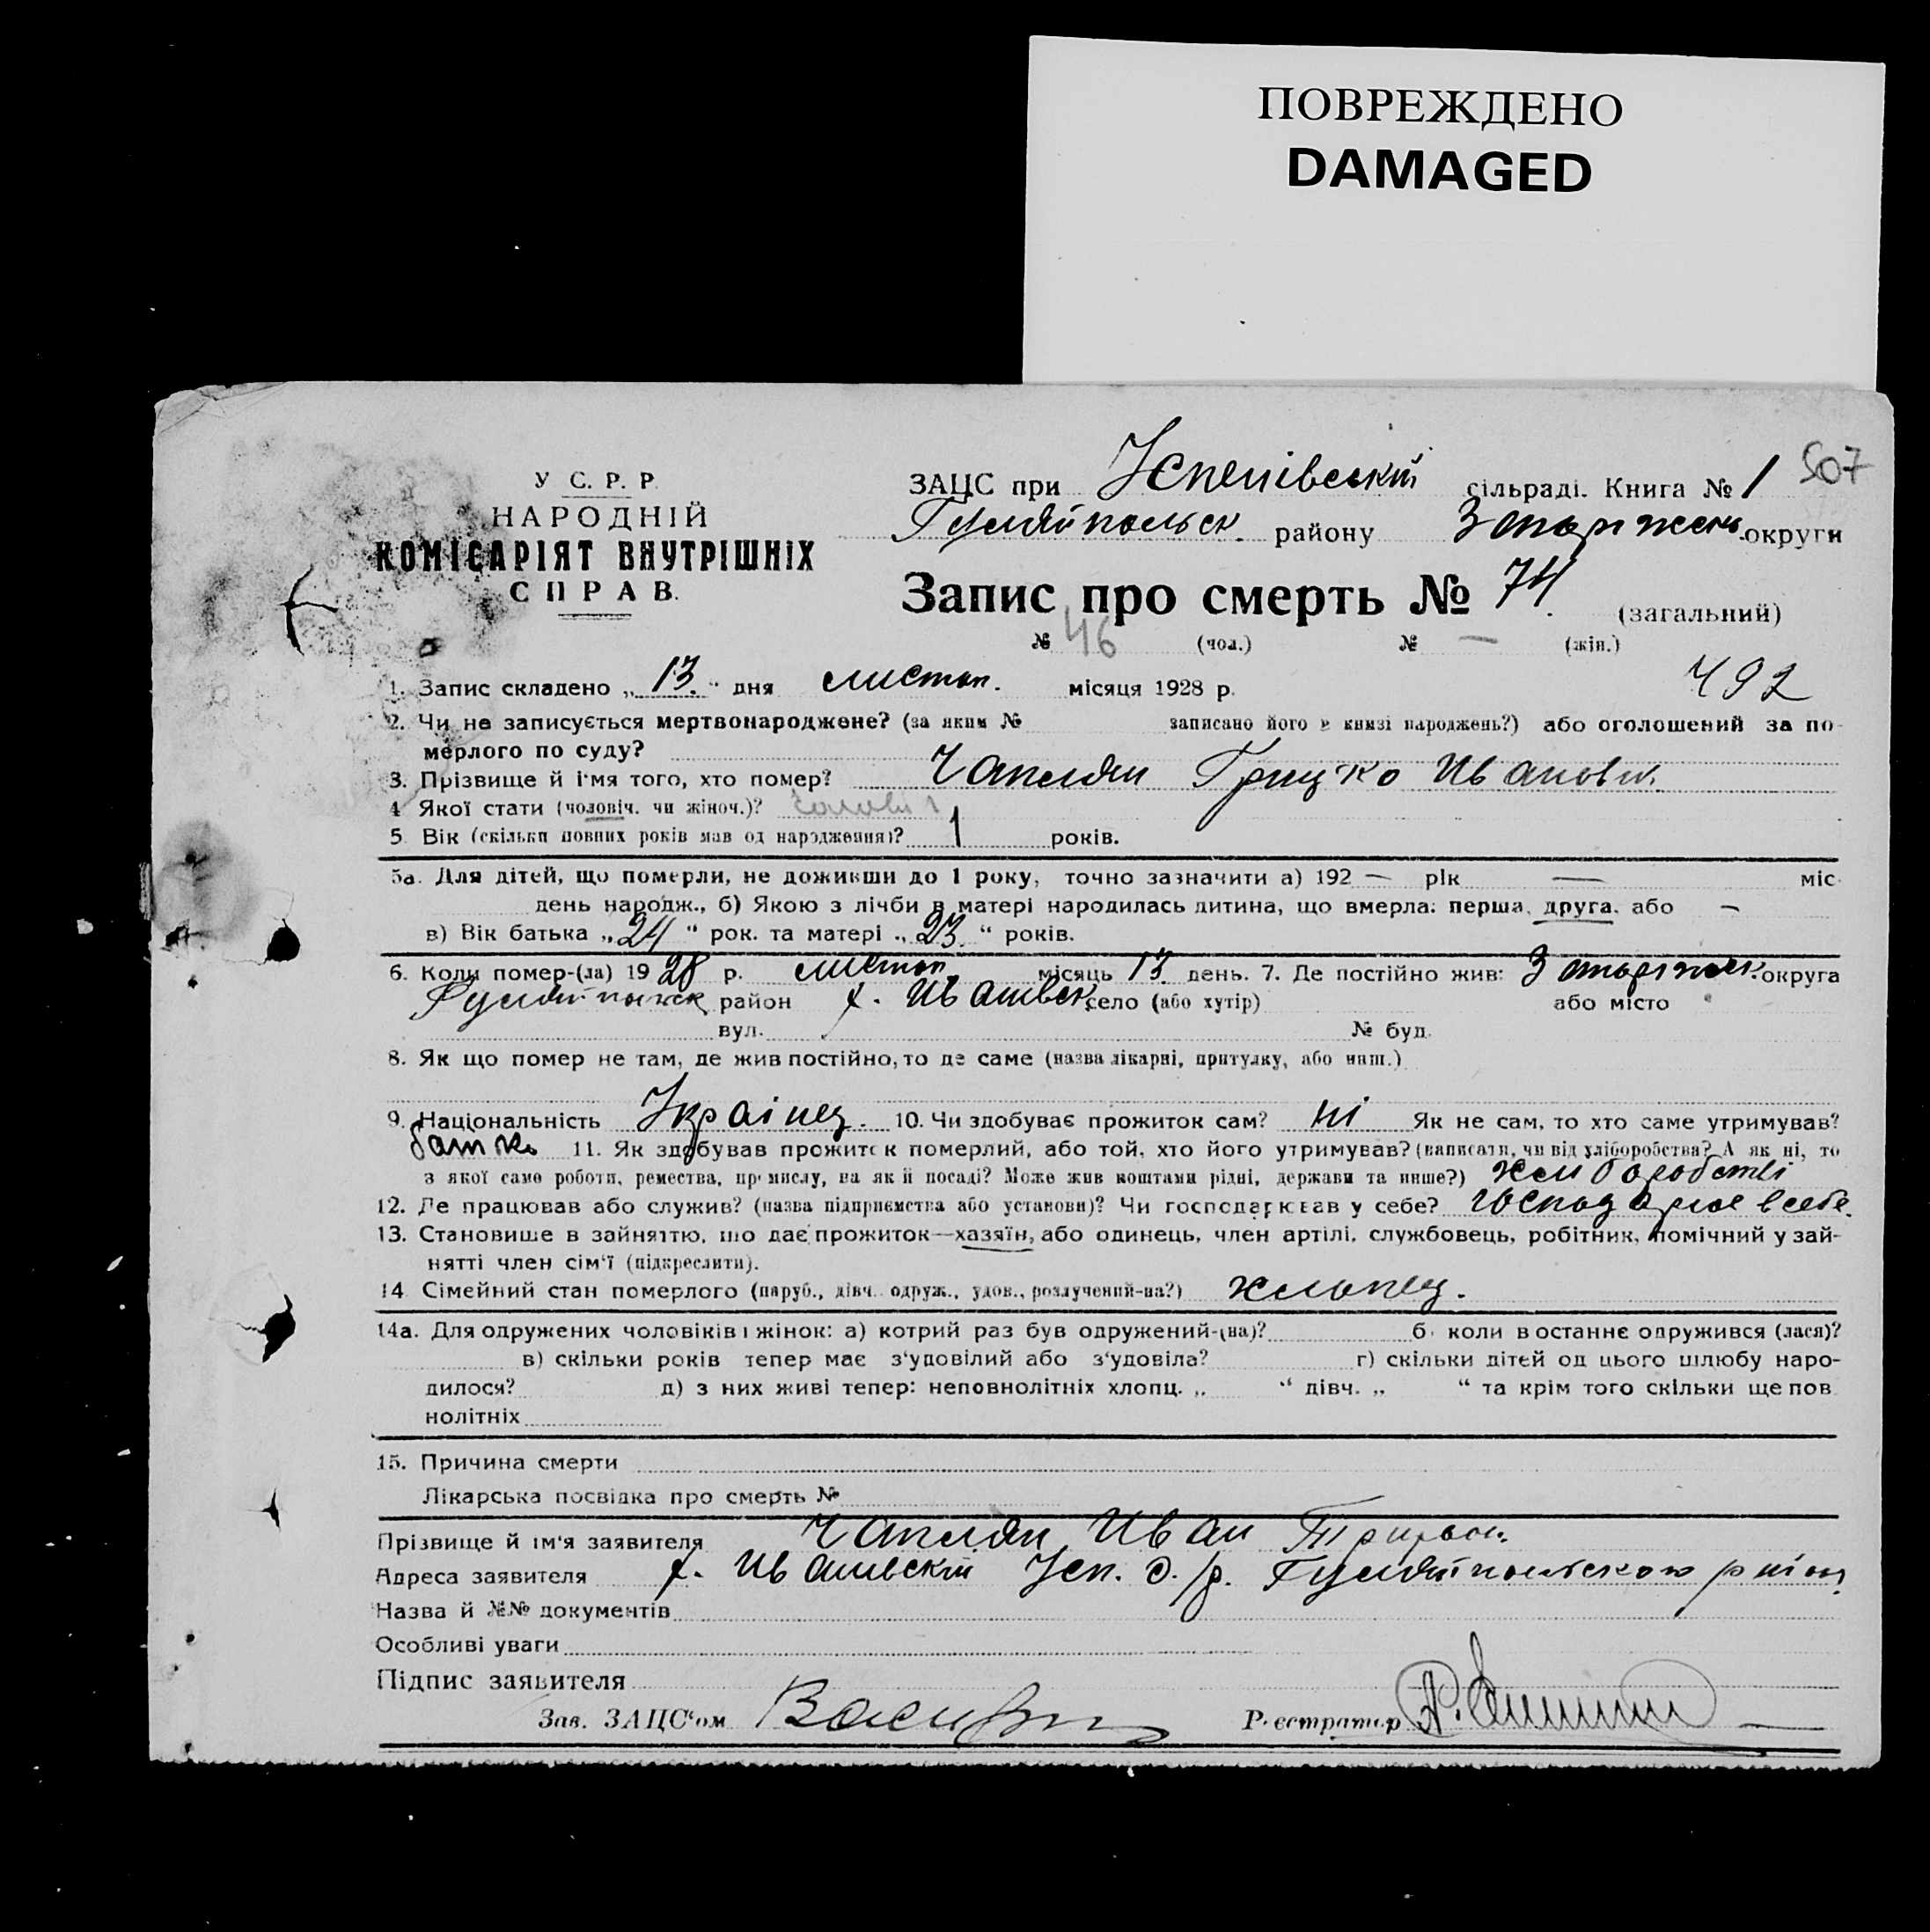 ПОВРЕЖДЕНО
DAMAGED
У С. Р. Р.
НАРОДНІЙ
КОМІСАРІЯТ ВНУТРІШНІХ
СПРАВ.
ЗАЦС при Успенівський сільраді. Книга № 1 507
Гуляйпольск. району Запоріжськ. округи
Запис про смерть № 74 (загальний)
№ 46 (чол.) № — (жін.)
1. Запис складено „ 13 “ дня листоп. місяця 1928 р. 492
2. Чи не записується мертвонароджене? (за яким № записано його в книзі народжень?) або оголошений за по-
мерлого по суду?
3. Прізвище й ім'я того, хто помер? Чаплян Грицко Иванович
4. Якої стати (чоловіч. чи жіноч.)? чоловіч
5. Вік (скільки повних років мав од народження)? 1 років.
5а. Для дітей, що померли, не доживши до 1 року, точно зазначити а) 192 — рік — міс.
день народж., б) Якою з лічби в матері народилась дитина, що вмерла: перша, друга, або —
в) Вік батька „ 24 “ рок. та матері „ 23. “ років.
6. Коли помер-(ла) 19 28 р. листоп. місяць 13 день. 7. Де постійно жив: Запоріжськ. округа
Гуляйпольск район х. Ивашвск село (або хутір) або місто
вул. № буд.
8. Як що помер не там, де жив постійно, то де саме (назва лікарні, притулку, або инш.)
9. Національність Украінец. 10. Чи здобуває прожиток сам? ні Як не сам, то хто саме утримував?
батько 11. Як здобував прожиток померлий, або той, хто його утримував? (написати, чи від хліборобства? А як ні, то
з якої саме роботи, ремества, промислу, на якій посаді? Може жив коштами рідні, держави та инше?) хліборобстві
12. Де працював або служив? (назва підприємства або установи)? Чи господарював у себе? господарює в себе.
13. Становище в зайняттю, що дає прожиток—хазяїн, або одинець, член артілі, службовець, робітник, помічний у зай-
нятті член сім'ї (підкреслити).
14. Сімейний стан померлого (паруб., дівч. одруж., удов., розлучений-на?) хлопец.
14а. Для одружених чоловіків і жінок: а) котрий раз був одружений-(на)? б) коли востаннє одружився (лася)?
в) скільки років тепер має з'удовілий або з'удовіла? г) скільки дітей од цього шлюбу наро-
дилося? д) з них живі тепер: неповнолітніх хлопц. „ “ дівч. „ “ та крім того скільки ще пов
нолітніх
15. Причина смерти
Лікарська посвідка про смерть №
Прізвище й ім'я заявителя Чаплян Иван
Адреса заявителя х. Ивашвский Усп. с./р. Гуляйпольского район
Назва й №№ документів
Особливі уваги
Підпис заявителя
Зав. ЗАЦС'ом
Реєстратор